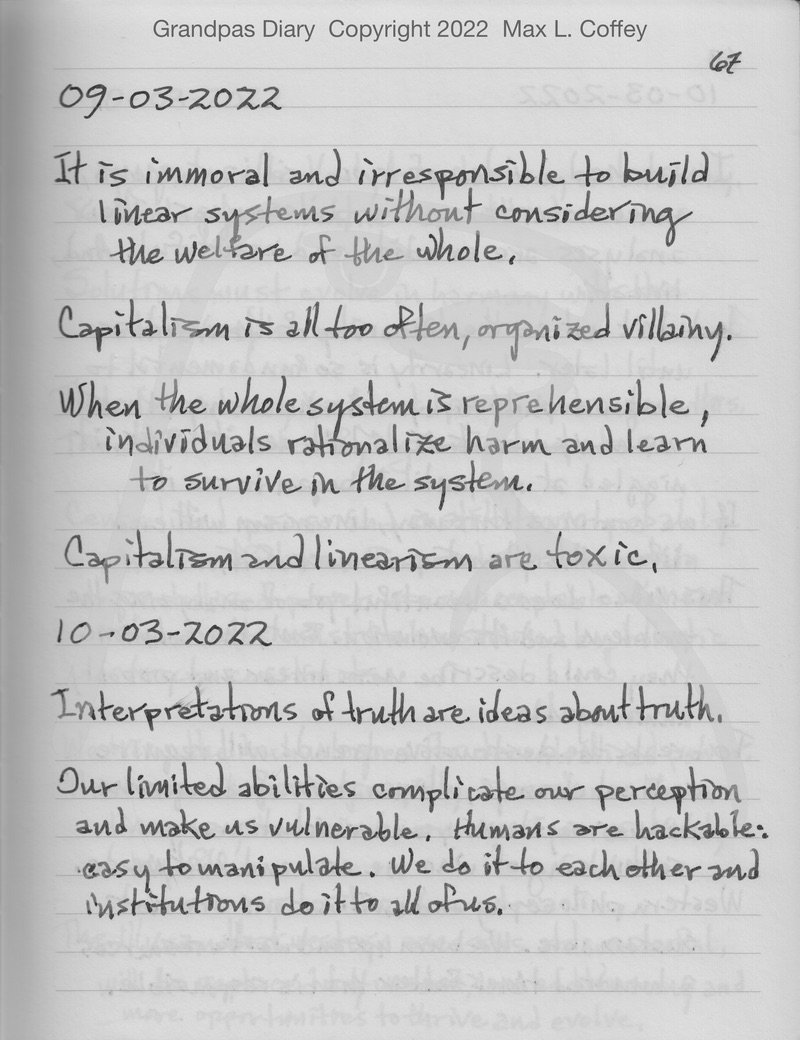 Grandpas Diary Copyright 2022 Max L. Coffey
67
09-03-2022
It is immoral and irresponsible to build
linear systems without considering
the welfare of the whole.
Capitalism is all too often, organized villainy.
When the whole system is reprehensible,
individuals rationalize harm and learn
to survive in the system.
Capitalism and linearism are toxic.
10-03-2022
Interpretations of truth are ideas about truth.
Our limited abilities complicate our perception
and make us vulnerable. Humans are hackable:
easy to manipulate. We do it to each other and
institutions do it to all of us.